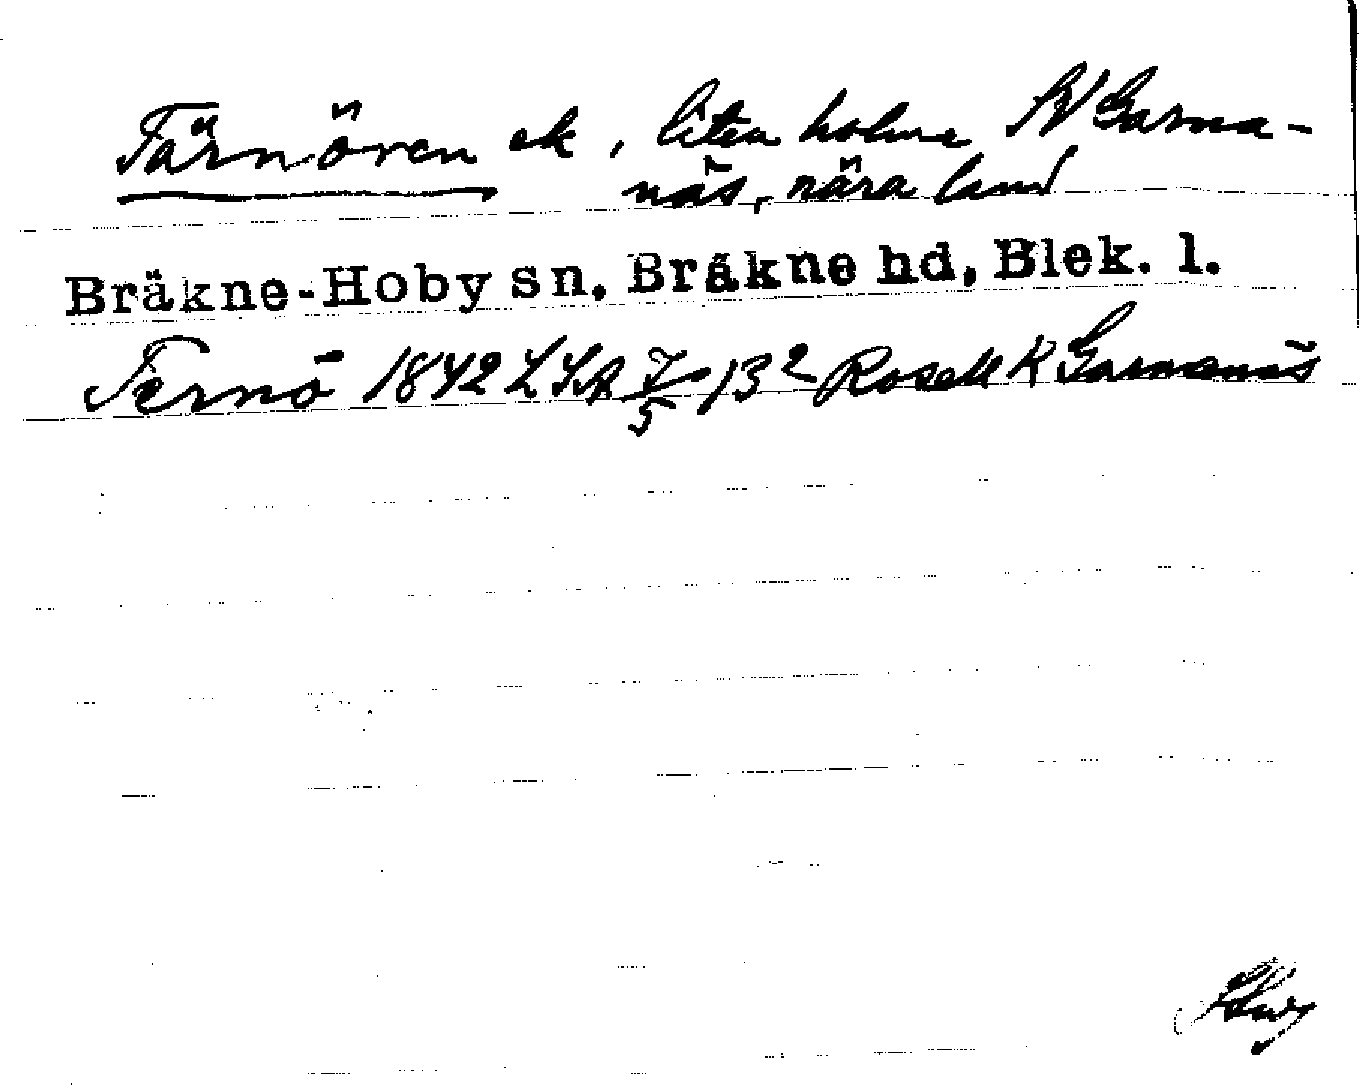 Tärnören ek, liten holme N Garna-
näs, nära land
Bräkne-Hoby sn, Bräkne hd, Blek. l.
Ternö 1842 LSA 7/5 13² Rosell K Garnanäs